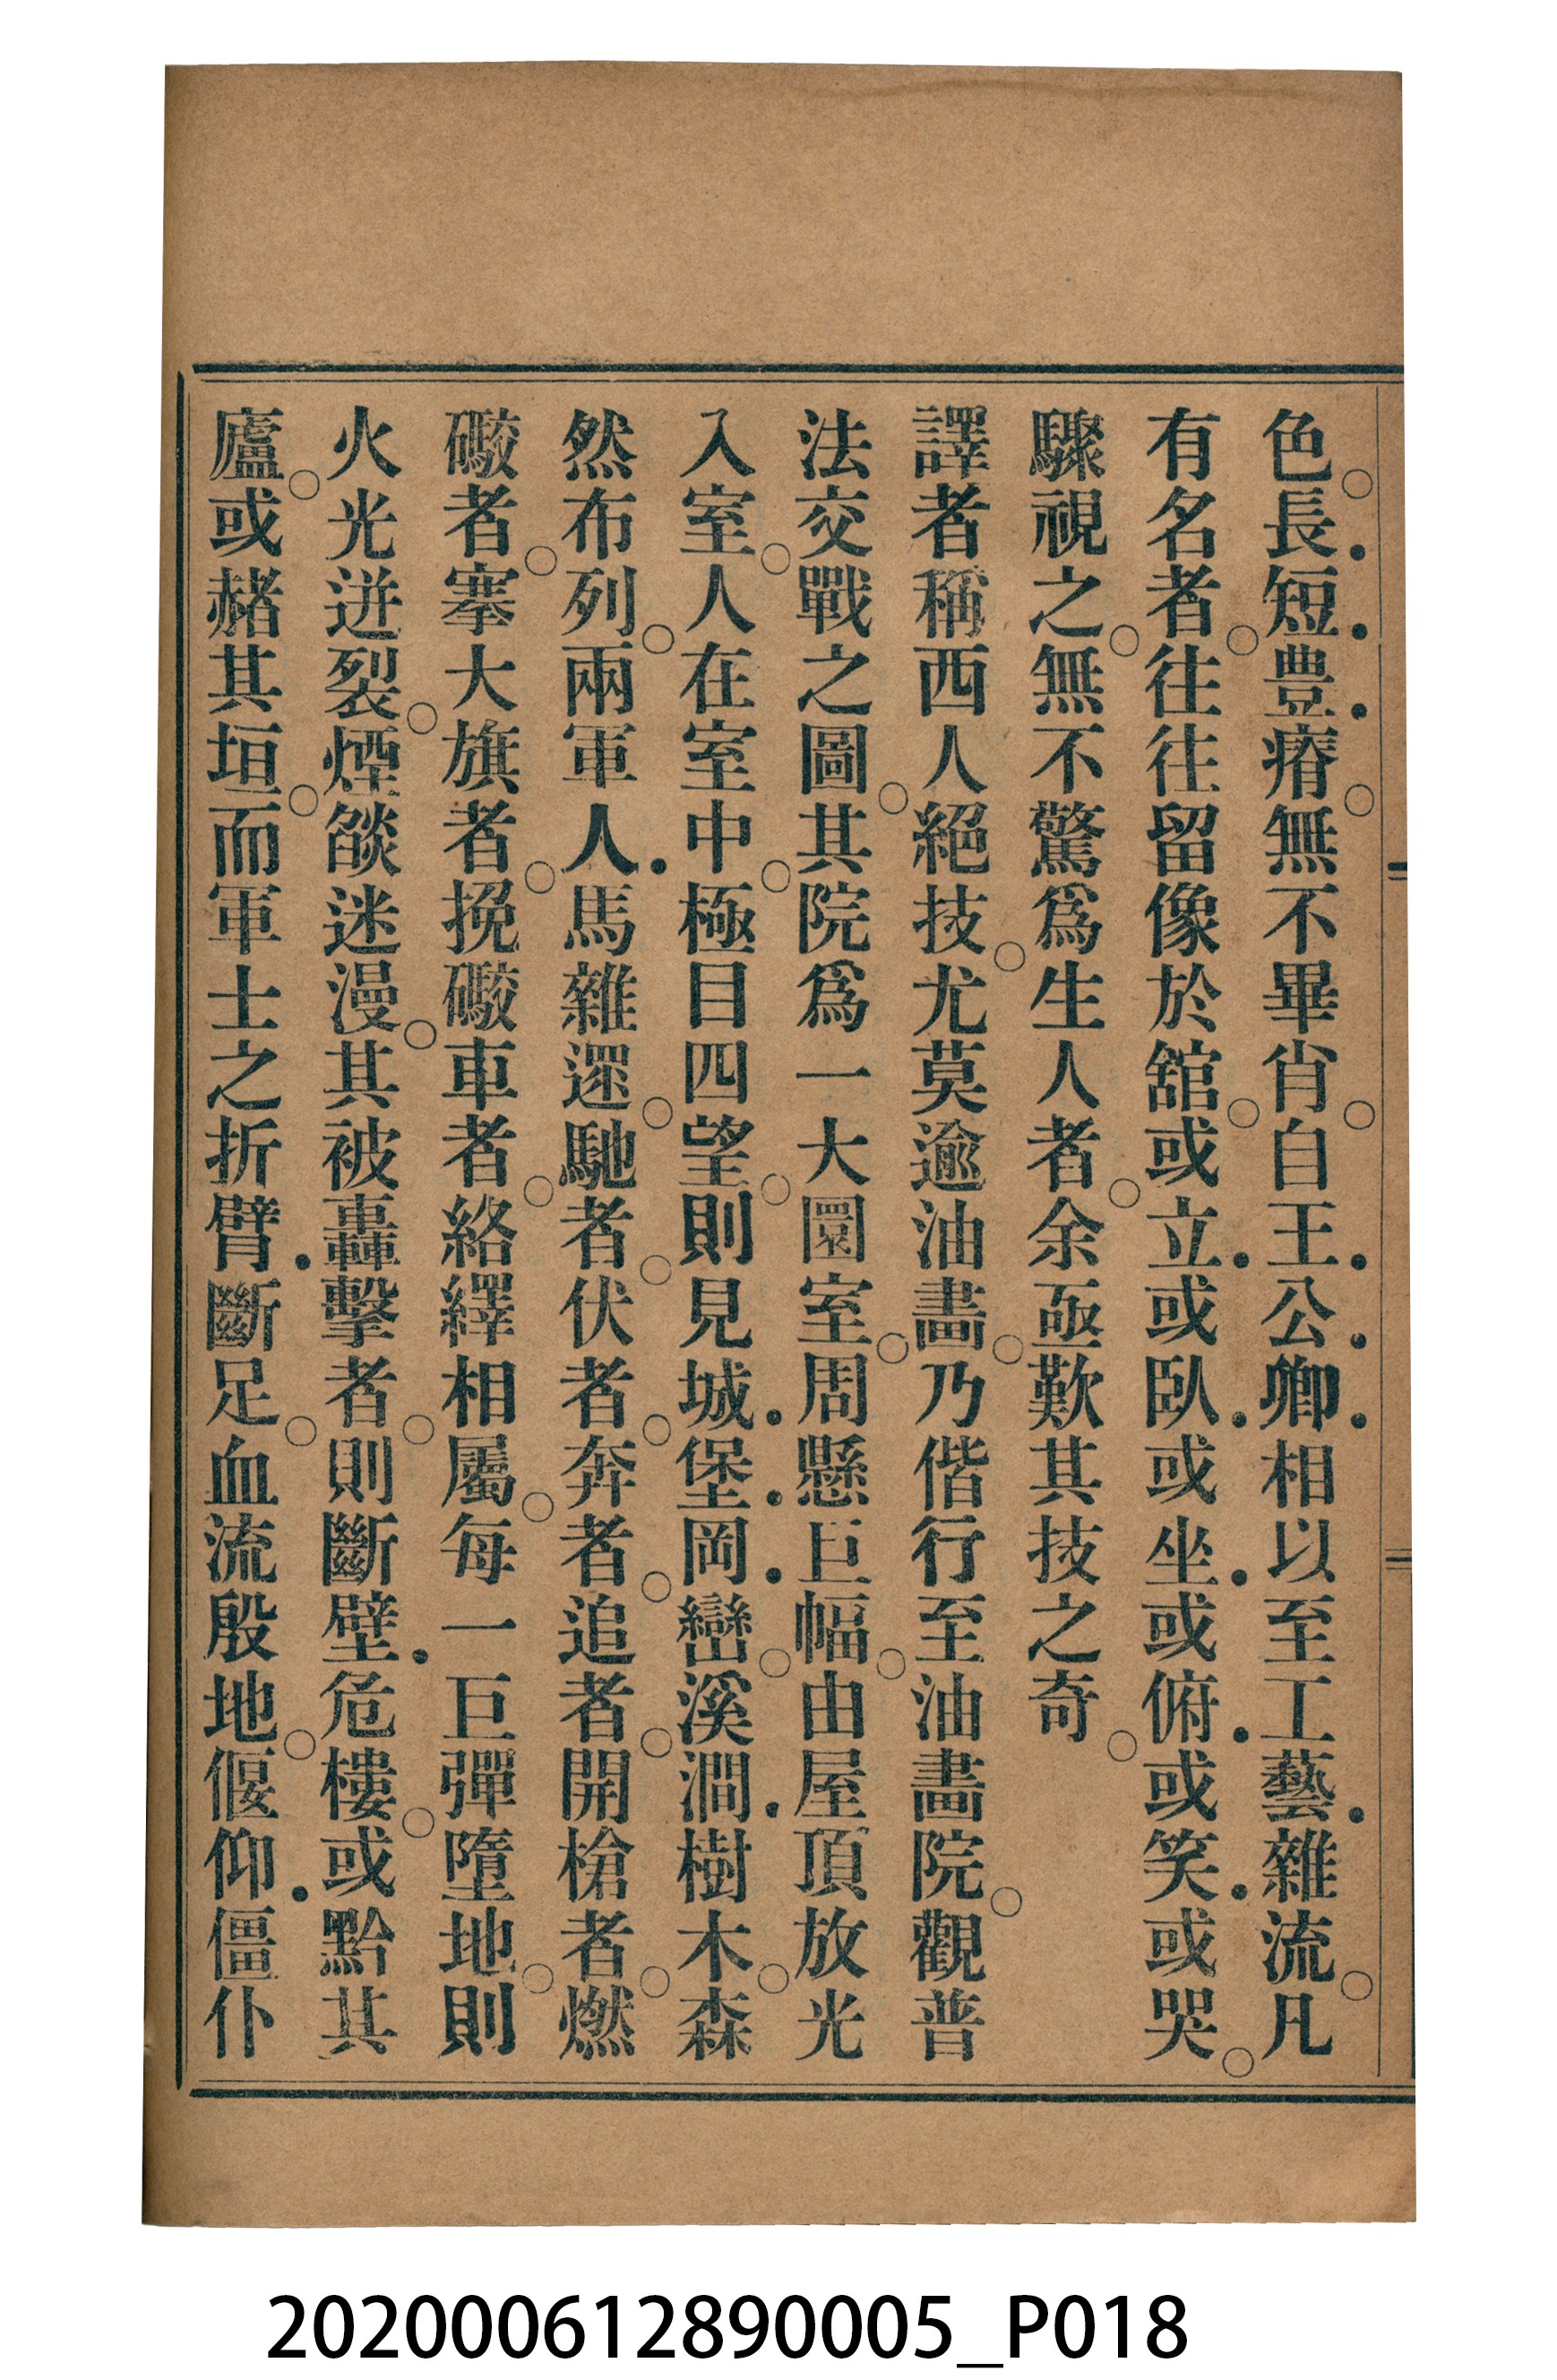 色○長●短●豊●瘠○無不畢肖○自王●公●卿●相以至工藝●雜流○凡
有名者○往往留像於舘○或立●或臥●或坐●或俯●或笑●或哭○
驟視之○無不驚爲生人者○余亟歎其技之奇○
譯者稱西人絕技○尤莫逾油畵○乃偕行至油畵院○觀普
法交戰之圖○其院爲一大圜室○周懸巨幅○由屋頂放光
入室○人在室中○極目四望○則見城●堡●岡●巒○溪澗●樹木○森
然布列○兩軍人●馬雜遝○馳者○伏者○奔者○追者○開槍者○燃
礮者○搴大旗者○挽礮車者○絡繹相屬○每一巨彈墮地○則
火光迸裂○煙燄迷漫○其被轟擊者○則斷壁●危樓○或黔其
廬○或赭其垣○而軍士之折臂●斷足○血流殷地○偃仰●僵仆
202000612890005_P018